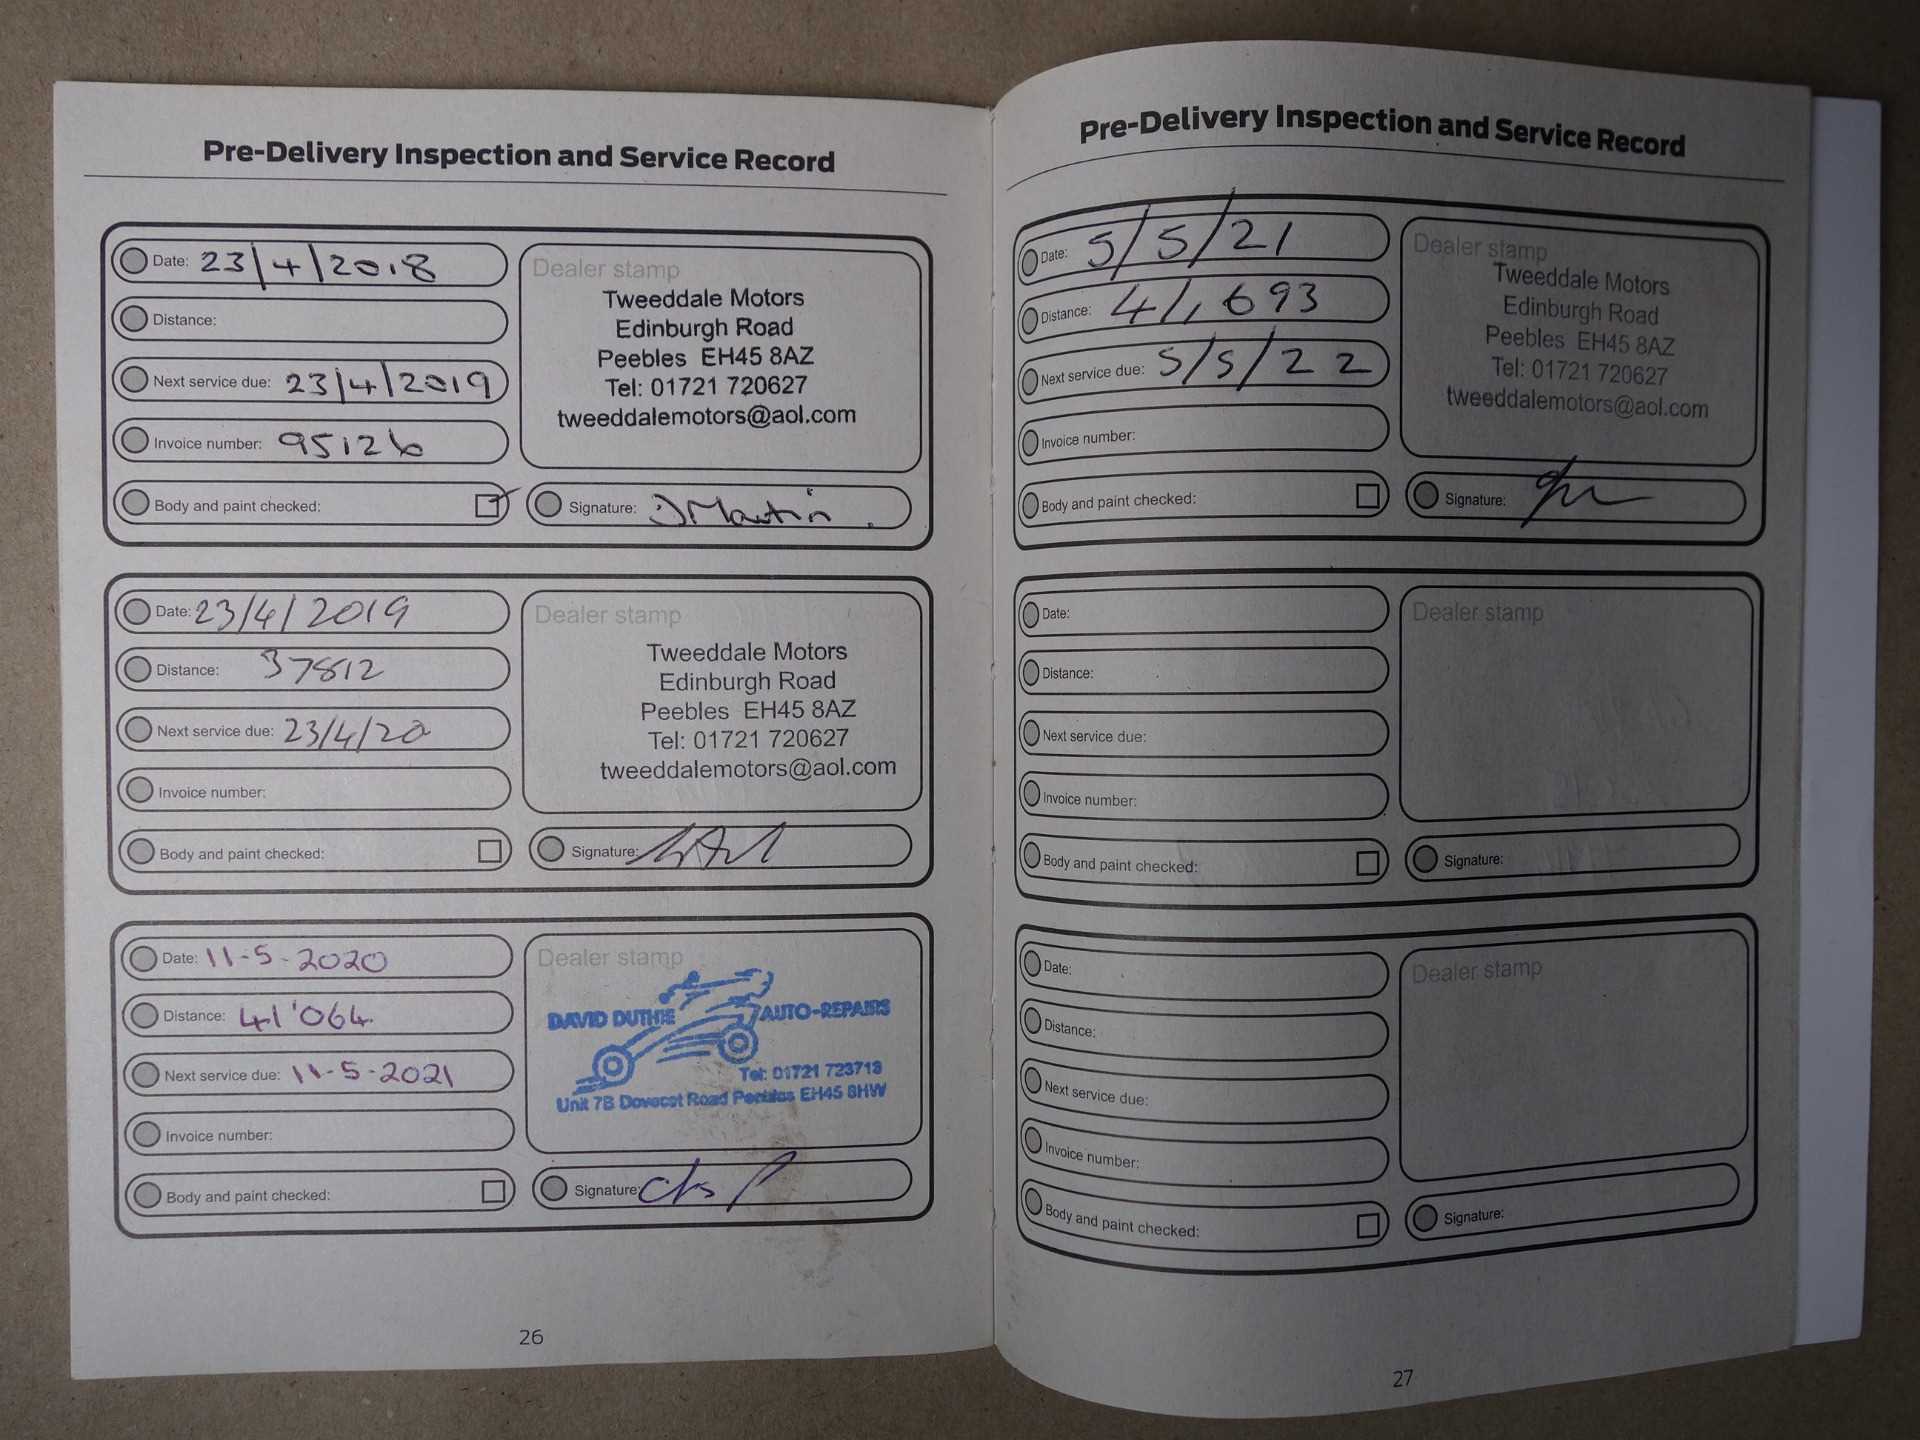 Pre-Delivery Inspection and Service Record
Date: 23/4/2018
Distance:
Next service due: 23/4/2019
Invoice number: 95126
Body and paint checked:
Dealer stamp
Tweeddale Motors
Edinburgh Road
Peebles EH45 8AZ
Tel: 01721 720627
tweeddalemotors@aol.com
Signature: D Martin.
Date: 23/4/2019
Distance: 37812
Next service due: 23/4/20
Invoice number:
Body and paint checked:
Dealer stamp
Tweeddale Motors
Edinburgh Road
Peebles EH45 8AZ
Tel: 01721 720627
tweeddalemotors@aol.com
Signature:
Date: 11-5-2020
Distance: 41'064
Next service due: 11-5-2021
Invoice number:
Body and paint checked:
Dealer stamp
DAVID DUTHIE AUTO-REPAIRS
Tel: 01721 723713
Unit 7B Dovecot Road Peebles EH45 8HW
Signature:
26
Pre-Delivery Inspection and Service Record
Date: 5/5/21
Distance: 41,693
Next service due: 5/5/22
Invoice number:
Body and paint checked:
Dealer stamp
Tweeddale Motors
Edinburgh Road
Peebles EH45 8AZ
Tel: 01721 720627
tweeddalemotors@aol.com
Signature:
Date:
Distance:
Next service due:
Invoice number:
Body and paint checked:
Dealer stamp
Signature:
Date:
Distance:
Next service due:
Invoice number:
Body and paint checked:
Dealer stamp
Signature:
27